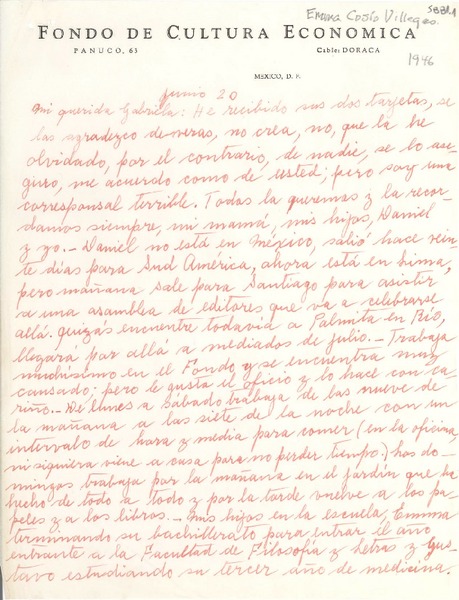 Emma Cosío Villegas.
FONDO DE CULTURA ECONOMICA
PANUCO, 63
Cables DORACA
1946
MEXICO, D. F.
junio 20
Mi querida Gabriela: He recibido sus dos tarjetas, se
las agradezco de veras, no crea, no, que la he
olvidado, por el contrario, de nadie, se lo ase-
guro, me acuerdo como de usted; pero soy una
corresponsal terrible. Todas la queremos y la recor-
damos siempre, mi mamá, mis hijos, Daniel
y yo. — Daniel no está en México, salió hace vein-
te días para Sud América, ahora está en Lima,
pero mañana sale para Santiago para asistir
a una asamblea de editores que va a celebrarse
allá. Quizás encuentre todavía a Palmita en Río,
llegará por allá a mediados de julio. — Trabaja
muchísimo en el Fondo y se encuentra muy
cansado; pero le gusta el oficio y lo hace con ca-
riño. — De lunes a sábado trabaja de las nueve de
la mañana a las siete de la noche con un
intervalo de hora y media para comer (en la oficina,
ni siquiera viene a casa para no perder tiempo) los do-
mingos trabaja por la mañana en el jardín que ha
hecho de todo a todo y por la tarde vuelve a los pa-
peles y a los libros. — Mis hijos en la escuela, Emma
terminando su bachillerato para entrar el año
entrante a la Facultad de Filosofía y Letras y Gus-
tavo estudiando su tercer año de medicina.